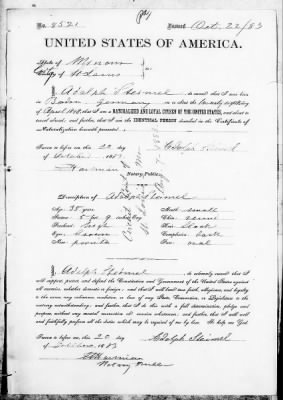 No. 8521 Issued Oct. 22/83
UNITED STATES OF AMERICA.
State of Missouri
City of St Louis
I Adolph Stiemel, do swear that I was born
in Baden Germany on or about the
; that I am a NATURALIZED AND LOYAL CITIZEN OF THE UNITED STATES, and about to
travel abroad; and further, that I am the IDENTICAL PERSON described in the Certificate of
Naturalization herewith presented.
Sworn to before me this 20 day
of October 1883
Harman
Notary Public.
Description of Adolph Stiemel
Age: 35 years Mouth: small
Stature: 5 ft 9 inches Chin:
Forehead: high Hair: black
Eyes: brown Complexion: dark
Nose: Face: oval
I, Adolph Stiemel, do solemnly swear that I
will support, protect, and defend the Constitution and Government of the United States against
all enemies, whether domestic or foreign; and that I will bear true faith, allegiance, and loyalty
to the same, any ordinance, resolution, or law of any State, Convention, or Legislature to the
contrary notwithstanding; and further, that I do this with a full determination, pledge, and
purpose, without any mental reservation or evasion whatsoever; and further, that I will well
and faithfully perform all the duties which may be required of me by law. So help me God.
Sworn to before me this 20 Adolph Stiemel
day of October 1883
Harman
Notary Public